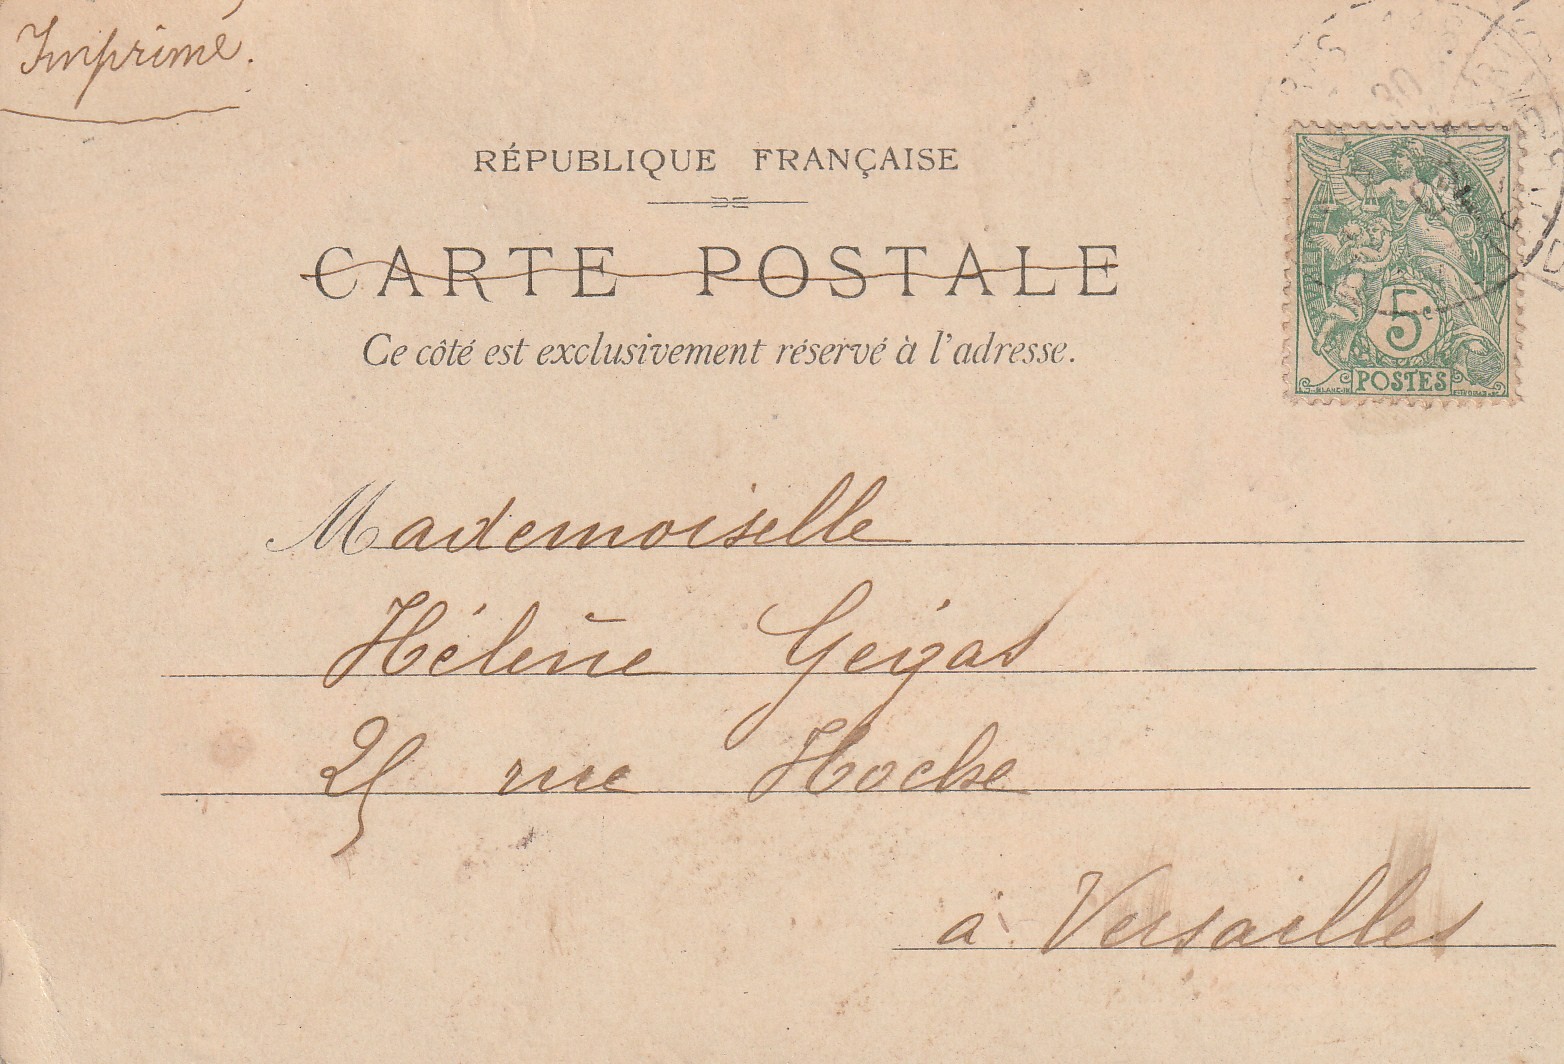 Imprimé.
RÉPUBLIQUE FRANÇAISE
CARTE POSTALE
Ce côté est exclusivement réservé à l'adresse.
5c
POSTES
Mademoiselle
Hélène Geigas
25 rue Hoche
à Versailles